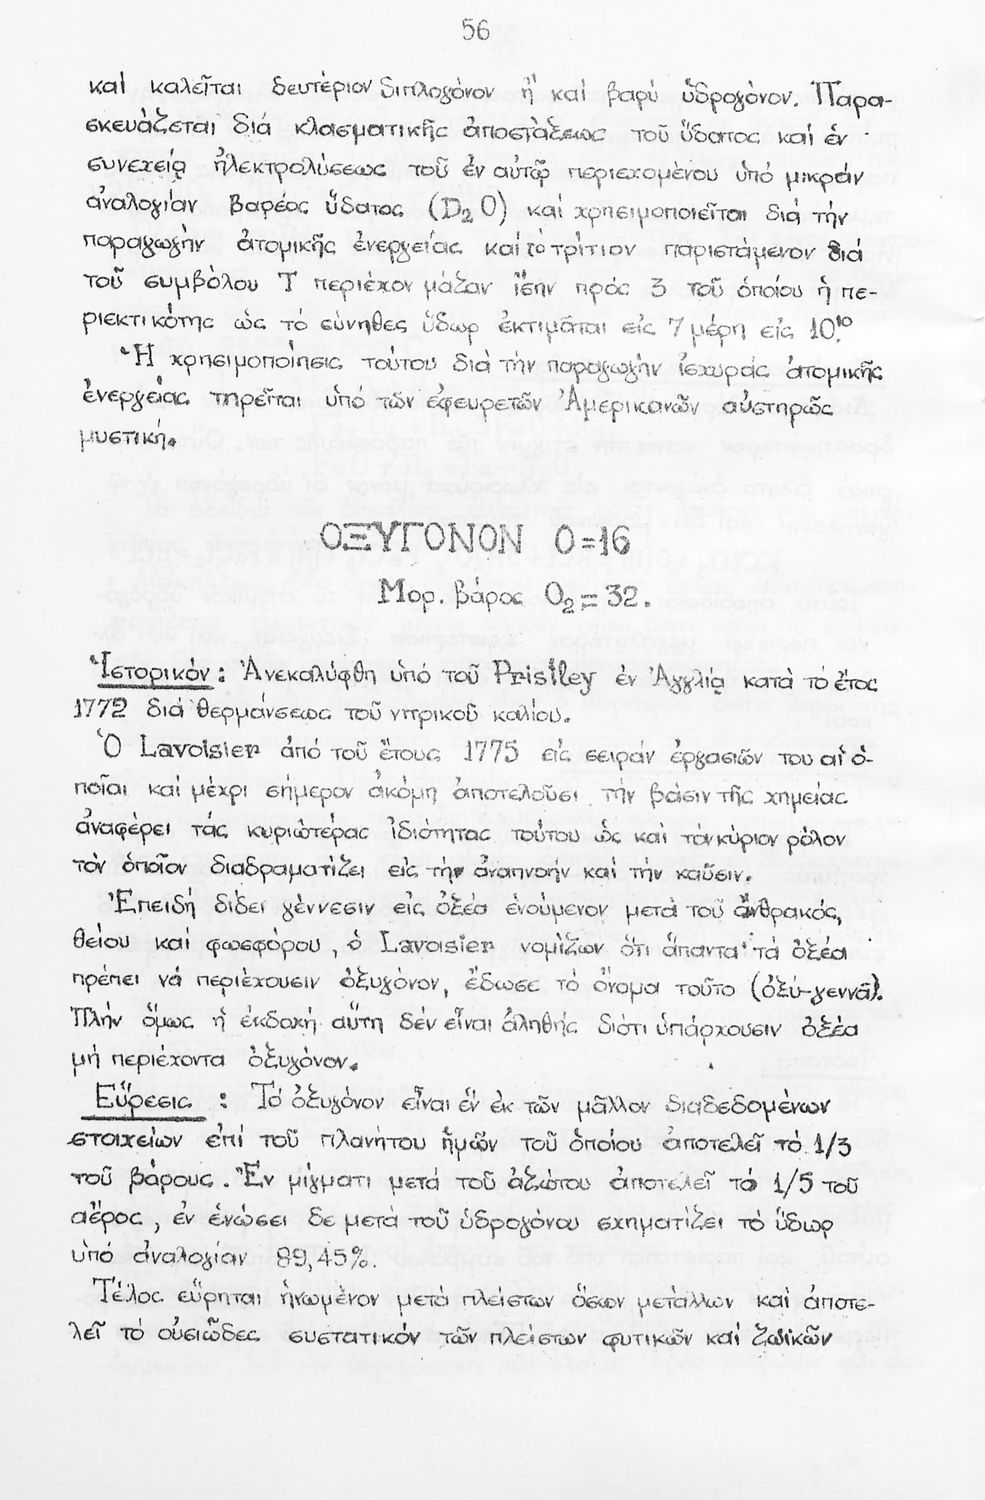 56
καί καλεῖται δευτέριον διπλογόνον ἤ καί βαρύ ὑδρογόνον. Παρα-
σκευάζεται διά κλασματικῆς ἀποστάξεως τοῦ ὕδατος καί ἐν
συνεχείᾳ ἠλεκτρολύσεως τοῦ ἐν αὐτῷ περιεχομένου ὑπό μικράν
ἀναλογίαν βαρέος ὕδατος (D₂ O) καί χρησιμοποιεῖται διά τήν
παραγωγήν ἀτομικῆς ἐνεργείας καί τό τρίτιον παριστάμενον διά
τοῦ συμβόλου T περιέχον μάζαν ἴσην πρός 3 τοῦ ὁποίου ἡ πε-
ριεκτικότης ὡς τό σύνηθες ὕδωρ ἐκτιμᾶται εἰς 7 μέρη εἰς 10¹⁰.
Ἡ χρησιμοποίησις τούτου διά τήν παραγωγήν ἰσχυράς ἀτομικῆς
ἐνεργείας τηρεῖται ὑπό τῶν ἐφευρετῶν Ἀμερικανῶν αὐστηρῶς
μυστική.
ΟΞΥΓΟΝΟΝ O=16
Μορ. βάρος O₂ = 32.
Ἱστορικόν : Ἀνεκαλύφθη ὑπό τοῦ Pristley ἐν Ἀγγλίᾳ κατά τό ἔτος
1772 διά θερμάνσεως τοῦ νιτρικοῦ καλίου.
Ὁ Lavoisier ἀπό τοῦ ἔτους 1775 εἰς σειράν ἐργασιῶν του αἱ ὁ-
ποῖαι καί μέχρι σήμερον ἀκόμη ἀποτελοῦσι τήν βάσιν τῆς χημείας
ἀναφέρει τάς κυριωτέρας ἰδιότητας τούτου ὡς καί τόν κύριον ρόλον
τόν ὁποῖον διαδραματίζει εἰς τήν ἀναπνοήν καί τήν καῦσιν.
Ἐπειδή δίδει γέννεσιν εἰς ὀξέα ἑνούμενον μετά τοῦ ἄνθρακός,
θείου καί φωσφόρου, ὁ Lavoisier νομίζων ὅτι ἅπαντα τά ὀξέα
πρέπει νά περιέχουσιν ὀξυγόνον, ἔδωσε τό ὄνομα τοῦτο (ὀξύ-γεννᾶ).
Πλήν ὅμως ἡ ἐκδοχή αὕτη δέν εἶναι ἀληθής διότι ὑπάρχουσιν ὀξέα
μή περιέχοντα ὀξυγόνον.
Εὕρεσις : Τό ὀξυγόνον εἶναι ἕν ἐκ τῶν μᾶλλον διαδεδομένων
στοιχείων ἐπί τοῦ πλανήτου ἡμῶν τοῦ ὁποίου ἀποτελεῖ τό 1/3
τοῦ βάρους. Ἐν μίγματι μετά τοῦ ἀζώτου ἀποτελεῖ τό 1/5 τοῦ
ἀέρος, ἐν ἑνώσει δε μετά τοῦ ὑδρογόνου σχηματίζει τό ὕδωρ
ὑπό ἀναλογίαν 89,45%.
Τέλος εὕρηται ἡνωμένον μετά πλείστων ὅσων μετάλλων καί ἀποτε-
λεῖ τό οὐσιῶδες συστατικόν τῶν πλείστων φυτικῶν καί ζωϊκῶν